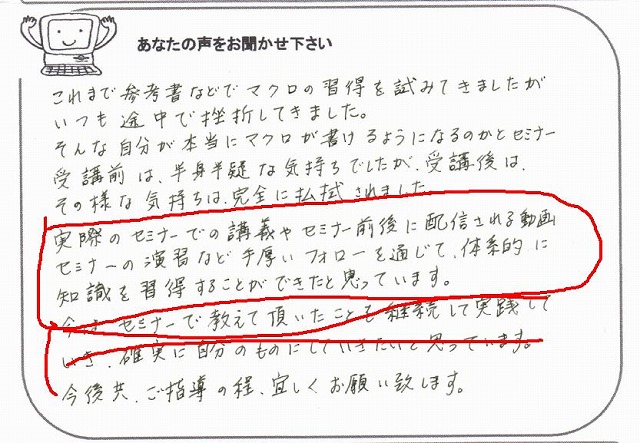 あなたの声をお聞かせ下さい
これまで参考書などでマクロの習得を試みてきましたが
いつも途中で挫折してきました。
そんな自分が本当にマクロが書けるようになるのかとセミナー
受講前は、半身半疑な気持ちでしたが、受講後は、
その様な気持ちは、完全に払拭されました。
実際のセミナーでの講義やセミナー前後に配信される動画
セミナーの演習など手厚いフォローを通じて、体系的に
知識を習得することができたと思っています。
今は、セミナーで教えて頂いたことを継続して実践して
いき、確実に自分のものにしていきたいと思っています。
今後共、ご指導の程、宜しくお願い致します。